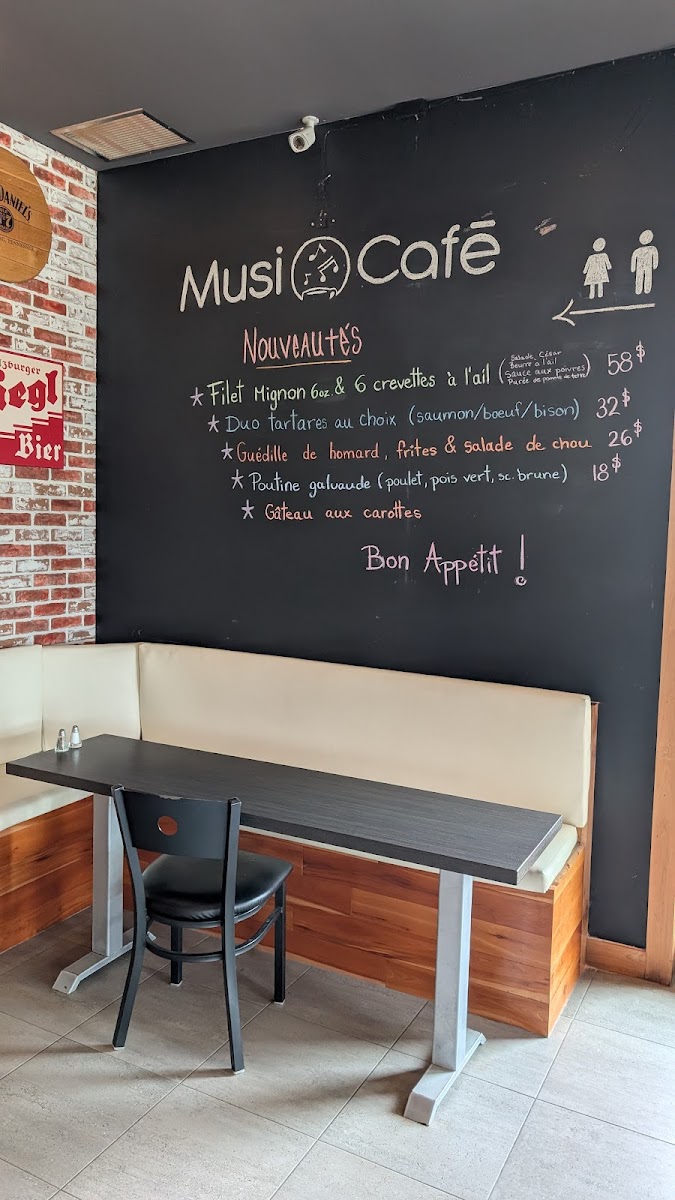 DANIEL'S
lzburger
iegl
Bier
Musi Café
NOUVEAUTÉS
Filet Mignon 6oz. & 6 crevettes à l'ail (Salade César
Beurre à l'ail
Sauce aux poivres
Purée de pomme de terre) 58$
Duo tartares au choix (saumon/boeuf/bison) 32$
Guédille de homard, frites & salade de chou 26$
Poutine galvaude (poulet, pois vert, sc. brune) 18$
Gâteau aux carottes
Bon Appétit !